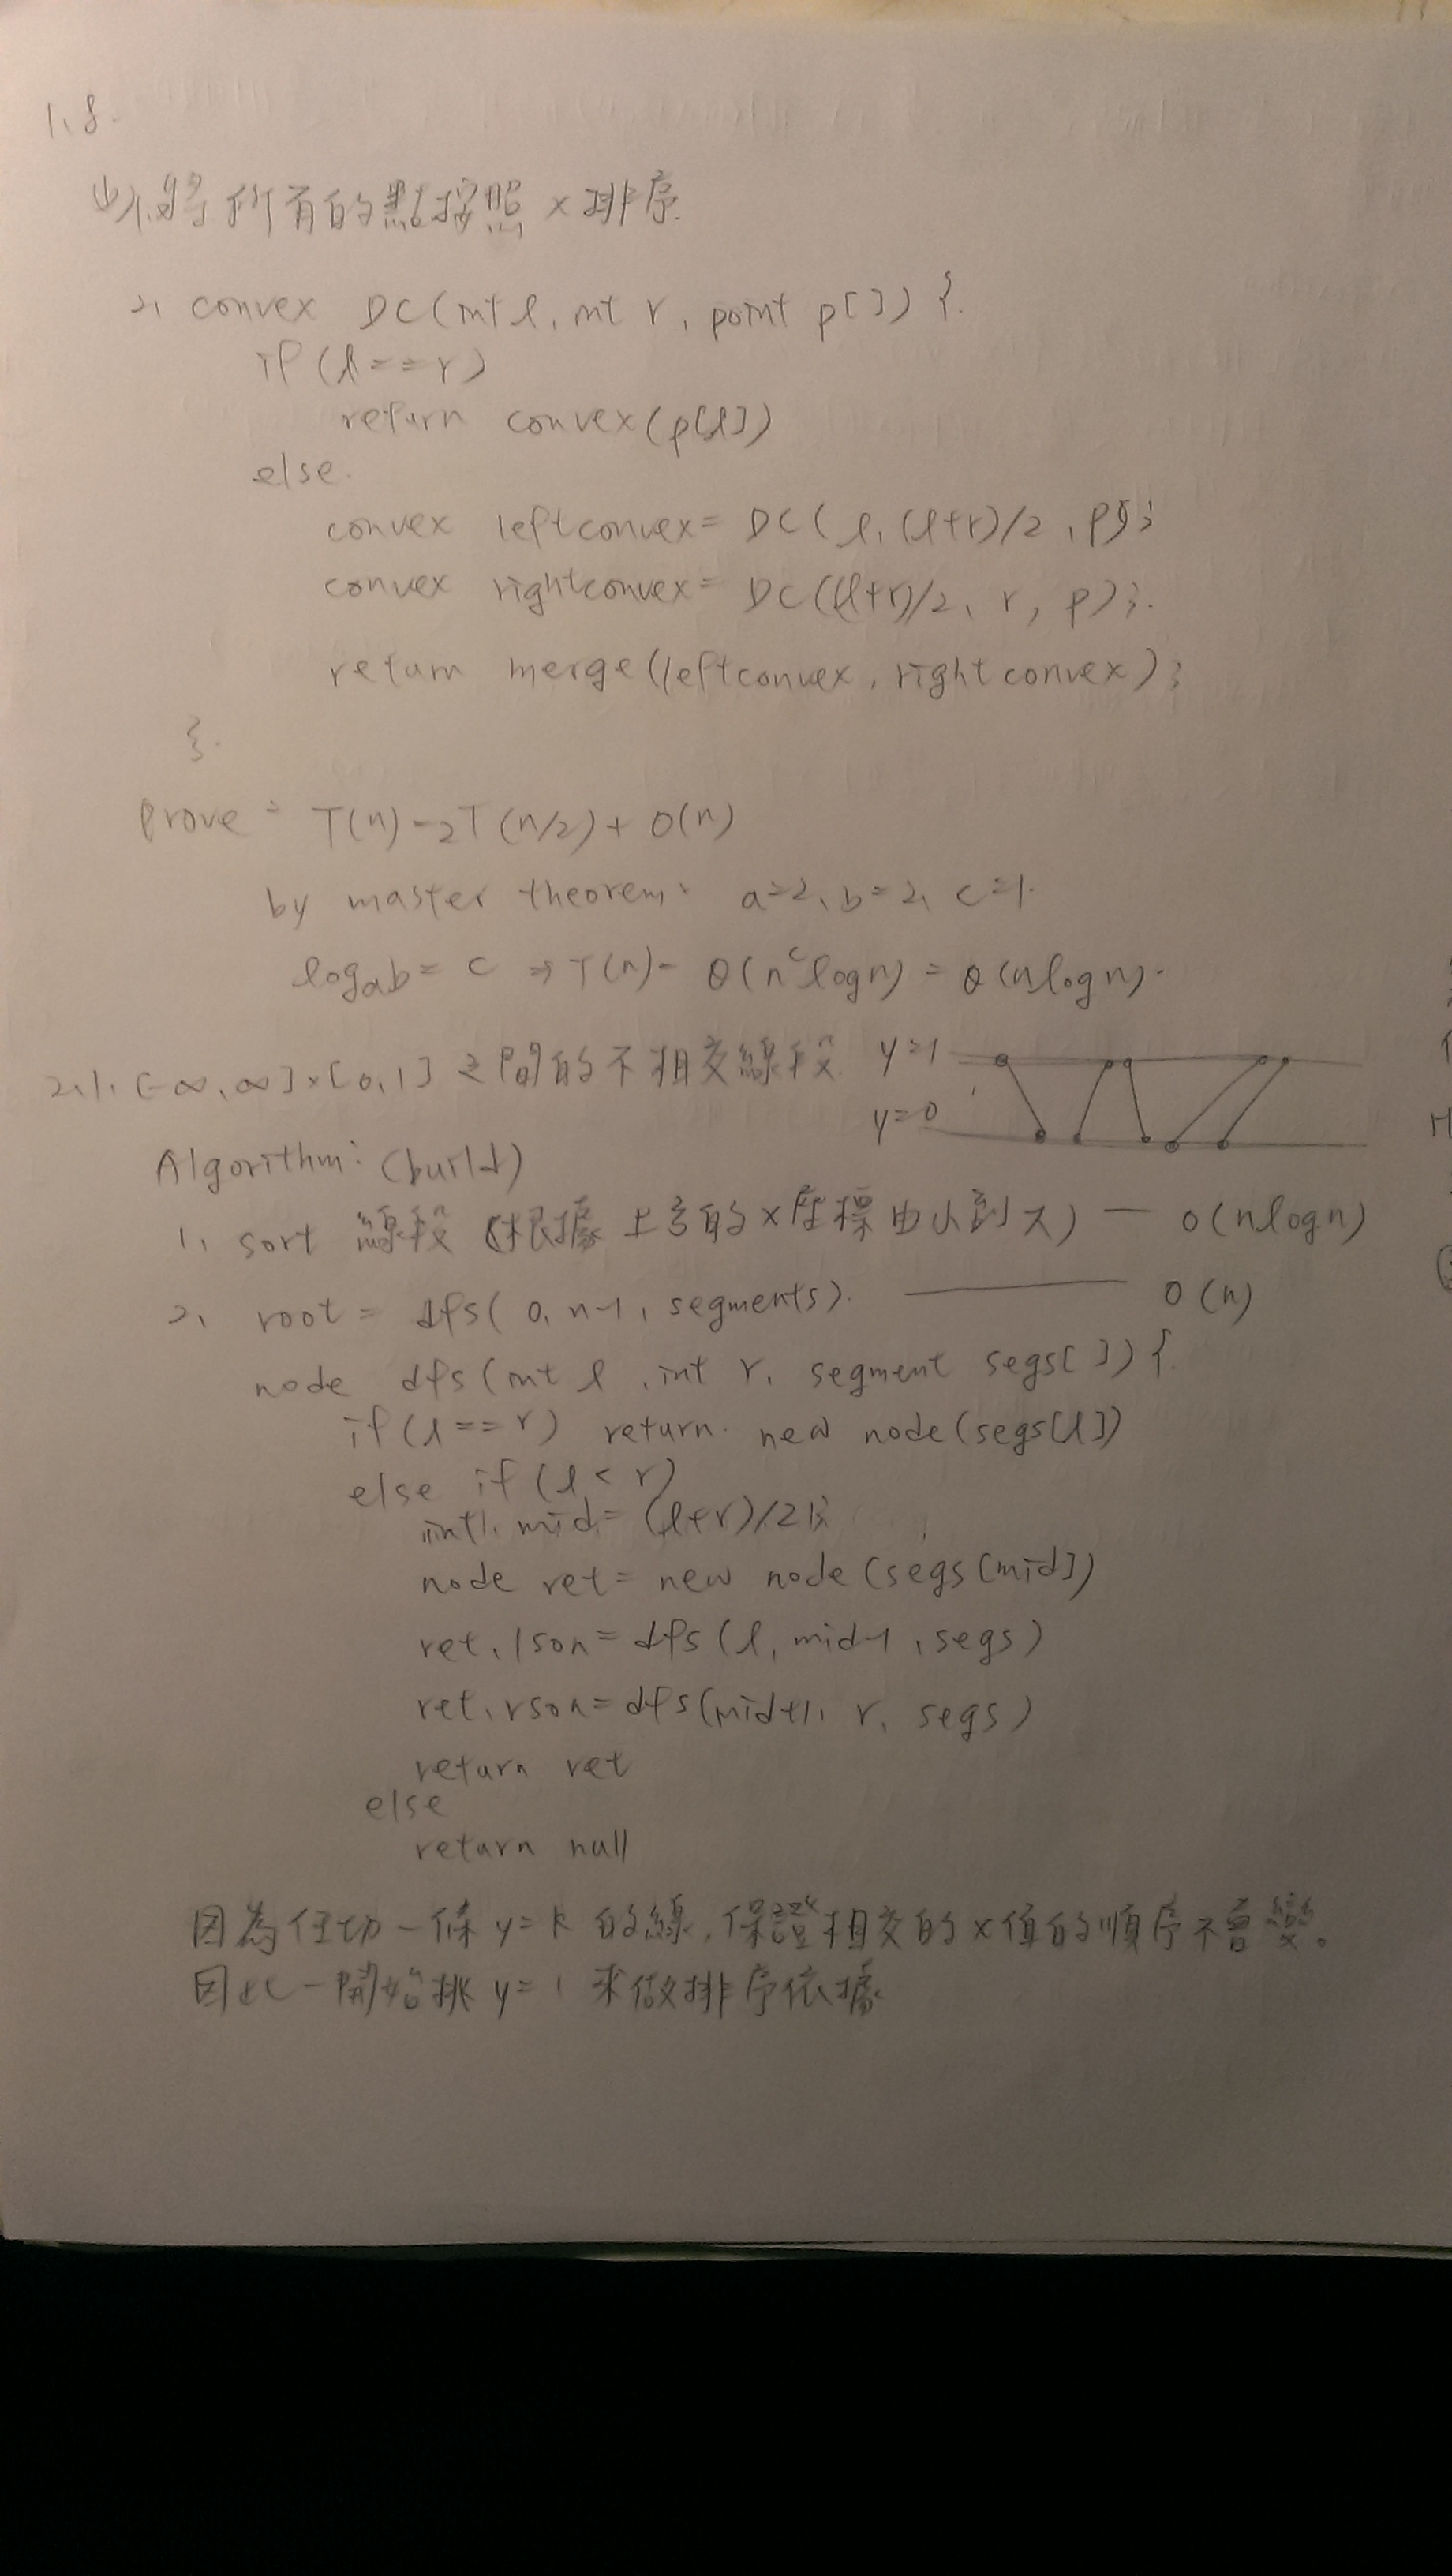 1.8.
(b) 1. 將所有的點按照 x 排序.
2. convex DC(int l, int r, point p[]) {
if (l==r)
return convex(p[l])
else.
convex leftconvex= DC(l, (l+r)/2, p);
convex rightconvex= DC((l+r)/2, r, p);
return merge(leftconvex, right convex);
}
Prove: T(n)=2T(n/2)+O(n)
by master theorem: a=2, b=2, c=1.
log_a b = c ⇒ T(n)= Θ(n^c log n) = Θ(n log n).
2.1. [-∞, ∞]×[0,1] 之間的不相交線段 y=1
y=0
Algorithm: (build)
1. sort 線段 (根據上方的 x 座標由小到大) — O(nlogn)
2. root = dfs(0, n-1, segments). — O(n)
node dfs(int l, int r, segment segs[]) {
if (l==r) return new node(segs[l])
else if (l<r)
int mid= (l+r)/2;
node ret= new node (segs[mid])
ret.lson= dfs(l, mid-1, segs)
ret.rson= dfs(mid+1, r, segs)
return ret
else
return null
因為任切一條 y=k 的線,保證相交的 x 值的順序不會變。
因此一開始挑 y=1 來做排序依據